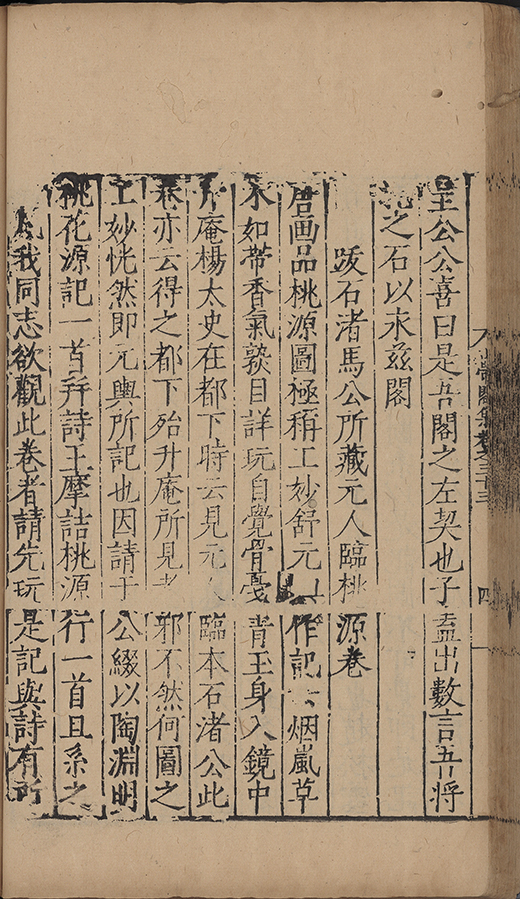 呈公公喜曰是吾閣之左契也子盍出數言吾將
之石以永茲閣
跋石渚馬公所藏元人臨桃源卷
唐画品桃源圖極稱工妙舒元作記云烟嵐草
木如帶香氣熟目詳玩自覺骨戞青玉身入鏡中
升庵楊太史在都下時云見元人臨本石渚公此
卷亦云得之都下殆升庵所見者邪不然何圖之
工妙恍然即元輿所記也因請于公綴以陶淵明
桃花源記一首并詩王摩詰桃源行一首且系之
凡我同志欲觀此卷者請先玩是記與詩有所
閣集卷之三十三
四